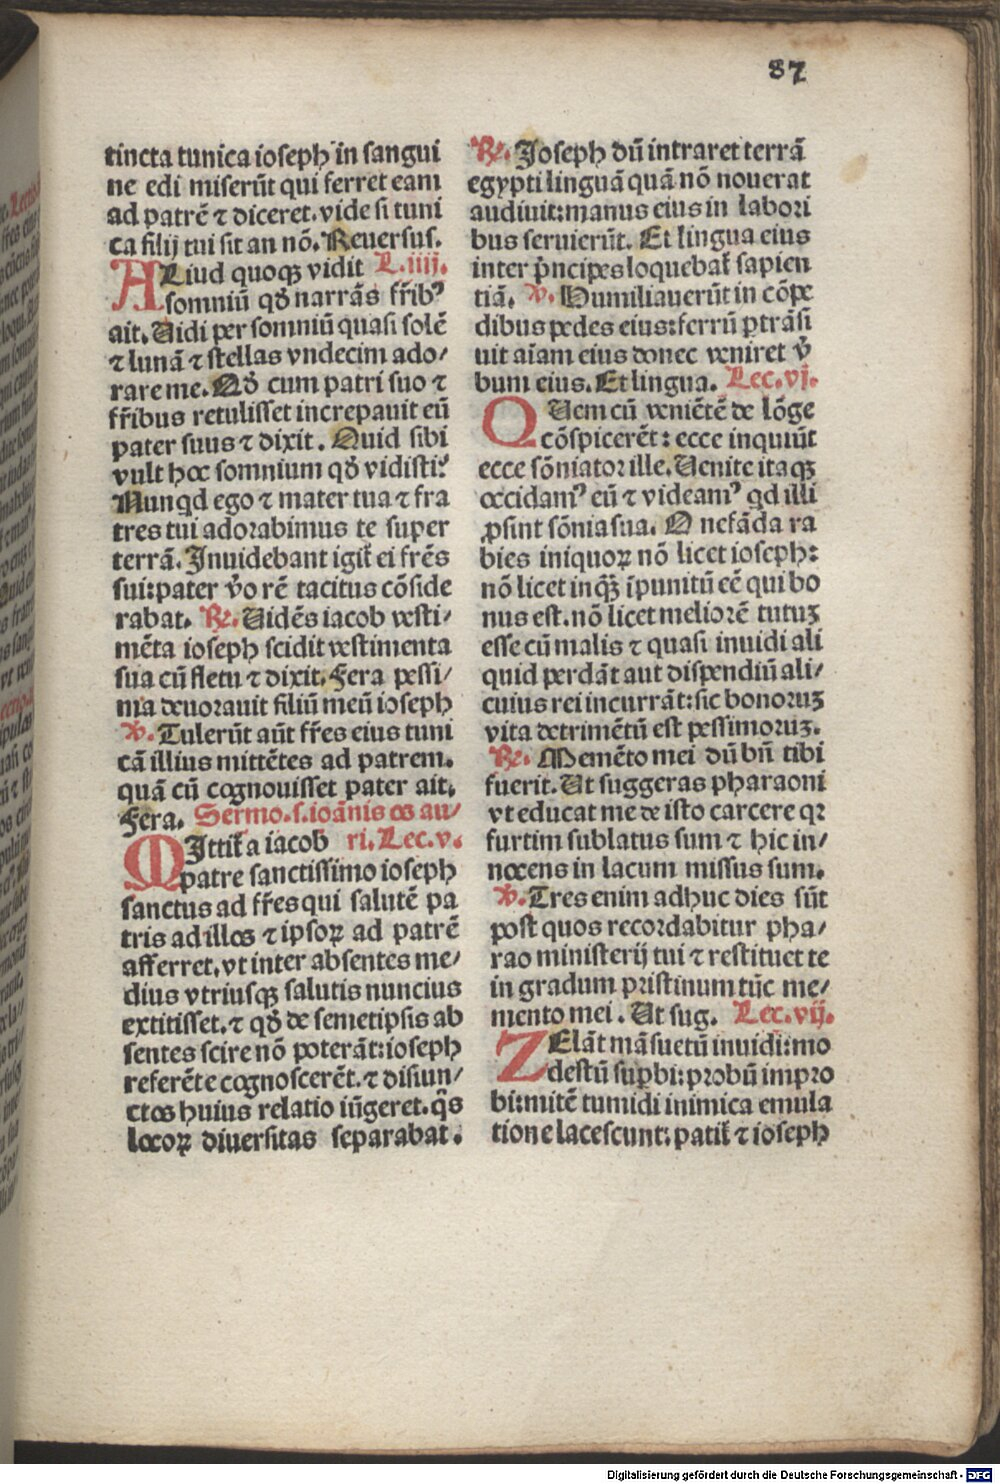 87
tincta tunica ioseph in sangui
ne edi miserūt qui ferret eam
ad patrē ⁊ diceret. vide si tuni
ca filij tui sit an nō. Reuersus.
ALiud quoqꝫ vidit L.iiij.
somniū qđ narrās fr̄ibꝰ
ait. Uidi per somniū quasi solē
⁊ lunā ⁊ stellas vndecim ado⸗
rare me. Qđ cum patri suo ⁊
fr̄ibus retulisset increpauit eū
pater suus ⁊ dixit. Quid sibi
vult hoc somnium qđ vidisti?
Nunqd ego ⁊ mater tua ⁊ fra
tres tui adorabimus te super
terrā. Inuidebant igit̄ ei frēs
sui: pater v̄o rē tacitus cōside
rabat. R̃. Uidēs iacob vesti⸗
mēta ioseph scidit vestimenta
sua cū fletu ⁊ dixit. Fera pessi⸗
ma deuorauit filiū meū ioseph
v̄. Tulerūt aūt fr̄es eius tuni
cā illius mittētes ad patrem.
quā cū cognouisset pater ait.
Fera. Sermo.s.ioānis os au⸗
MIttit̄ a iacob ri. Lec.v.
patre sanctissimo ioseph
sanctus ad fr̄es qui salutē pa
tris ad illos ⁊ ipsoꝝ ad patrē
afferret. vt inter absentes me⸗
dius vtriusqꝫ salutis nuncius
extitisset. ⁊ qđ de semetipsis ab
sentes scire nō poterāt: ioseph
referēte cognoscerēt. ⁊ disiun⸗
ctos huius relatio iūgeret. q̄s
locoꝝ diuersitas separabat.
R̃. Ioseph dū intraret terrā
egypti linguā quā nō nouerat
audiuit: manus eius in labori
bus seruierūt. Et lingua eius
inter p̄ncipes loquebat̄ sapien
tiā. v̄. Humiliauerūt in cōpe
dibus pedes eius: ferrū ꝑtrāsi
uit aīam eius donec veniret v̄
bum eius. Et lingua. Lec.vj.
QUem cū veniētē de lōge
cōspicerēt: ecce inquiūt
ecce sōniator ille. Uenite itaqꝫ
occidamꝰ eū ⁊ videamꝰ qd illi
ꝓsint sōnia sua. O nefāda ra
bies iniquoꝝ nō licet ioseph:
nō licet inqꝫ̄ īpunitū eē qui bo
nus est. nō licet meliorē tutuꝫ
esse cū malis ⁊ quasi inuidi ali
quid perdāt aut dispendiū ali⸗
cuius rei incurrāt: sic bonoruꝫ
vita detrimētū est pessimoruꝫ.
R̃. Memēto mei dū bn̄ tibi
fuerit. Ut suggeras pharaoni
vt educat me de isto carcere qꝛ
furtim sublatus sum ⁊ hic in⸗
nocens in lacum missus sum.
v̄. Tres enim adhuc dies sūt
post quos recordabitur pha⸗
rao ministerij tui ⁊ restituet te
in gradum pristinum tūc me⸗
mento mei. Ut sug. Lec.vij.
ZElāt māsuetū inuidi: mo
destū suꝑbi: probū impro
bi: mitē tumidi inimica emula
tione lacescunt: patit̄ ⁊ ioseph
Digitalisierung gefördert durch die Deutsche Forschungsgemeinschaft - DFG